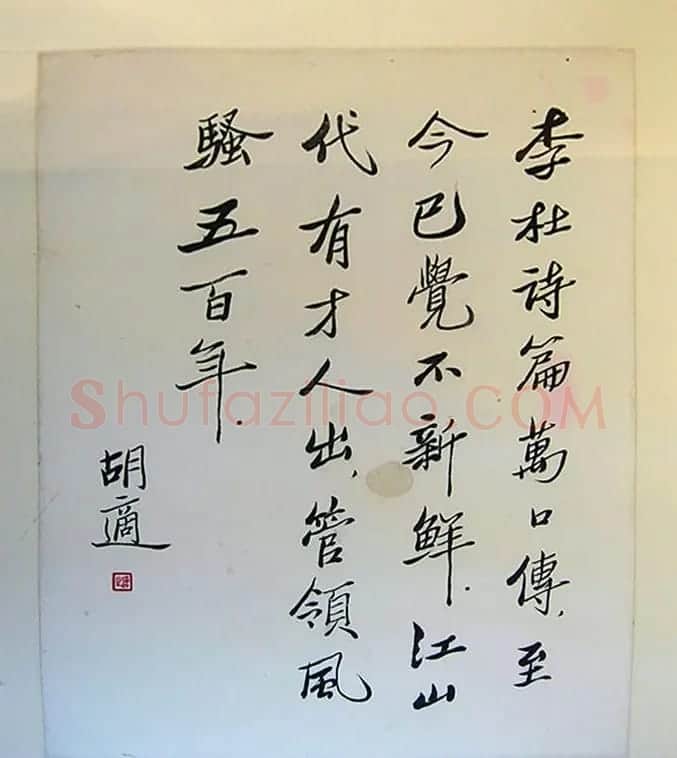 李杜詩篇萬口傳，至
今已覺不新鮮．江山
代有才人出，管領風
騷五百年．
胡適
Shufaziliao.COM